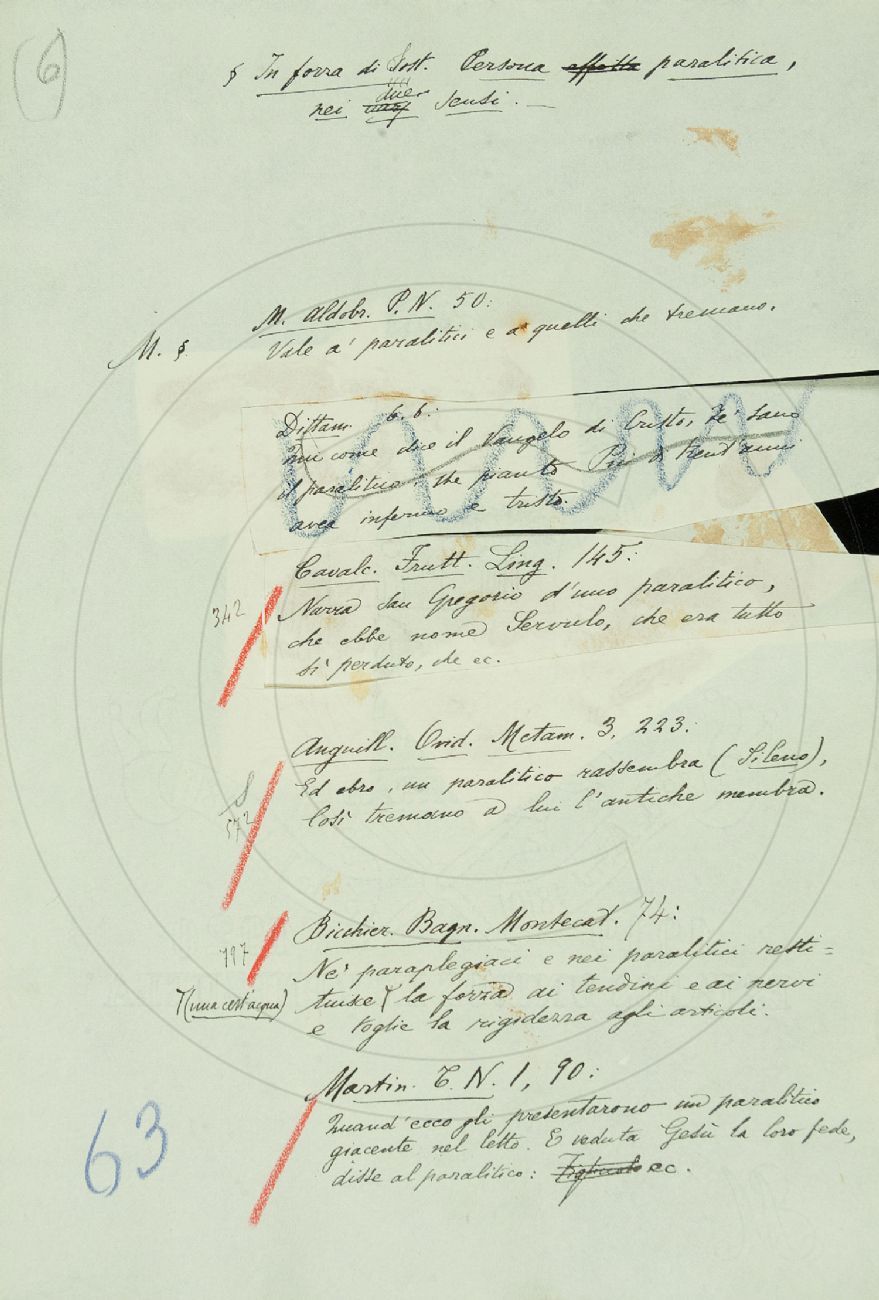 6
§ In forza di Sost. Persona affetta paralitica,
nei varj due sensi. —
M. Aldobr. P. N. 50:
M. §. Vale a' paralitici e a quelli che tremano.
Dittam. 6. 6:
Qui come dice il Vangelo di Cristo, Fe' sano
il paralitico, che pianto Più di trent'anni
avea infermo e tristo.
Cavalc. Frutt. Ling. 145:
342 Narra San Gregorio d'uno paralitico,
che ebbe nome Servulo, che era tutto
sì perduto, che ec.
Anguill. Ovid. Metam. 3, 223:
Ed ebro, un paralitico rassembra (Sileno),
572 Così tremano a lui l'antiche membra.
Bicchier. Bagn. Montecat. 74:
797 Ne' paraplegiaci e nei paralitici resti=
(una cert'acqua) tuisce la forza ai tendini e ai nervi
e toglie la rigidezza agli articoli.
Martin. T. N. 1, 90:
Quand'ecco gli presentarono un paralitico
giacente nel letto. E veduta Gesù la loro fede,
disse al paralitico: Figliuolo ec.
63